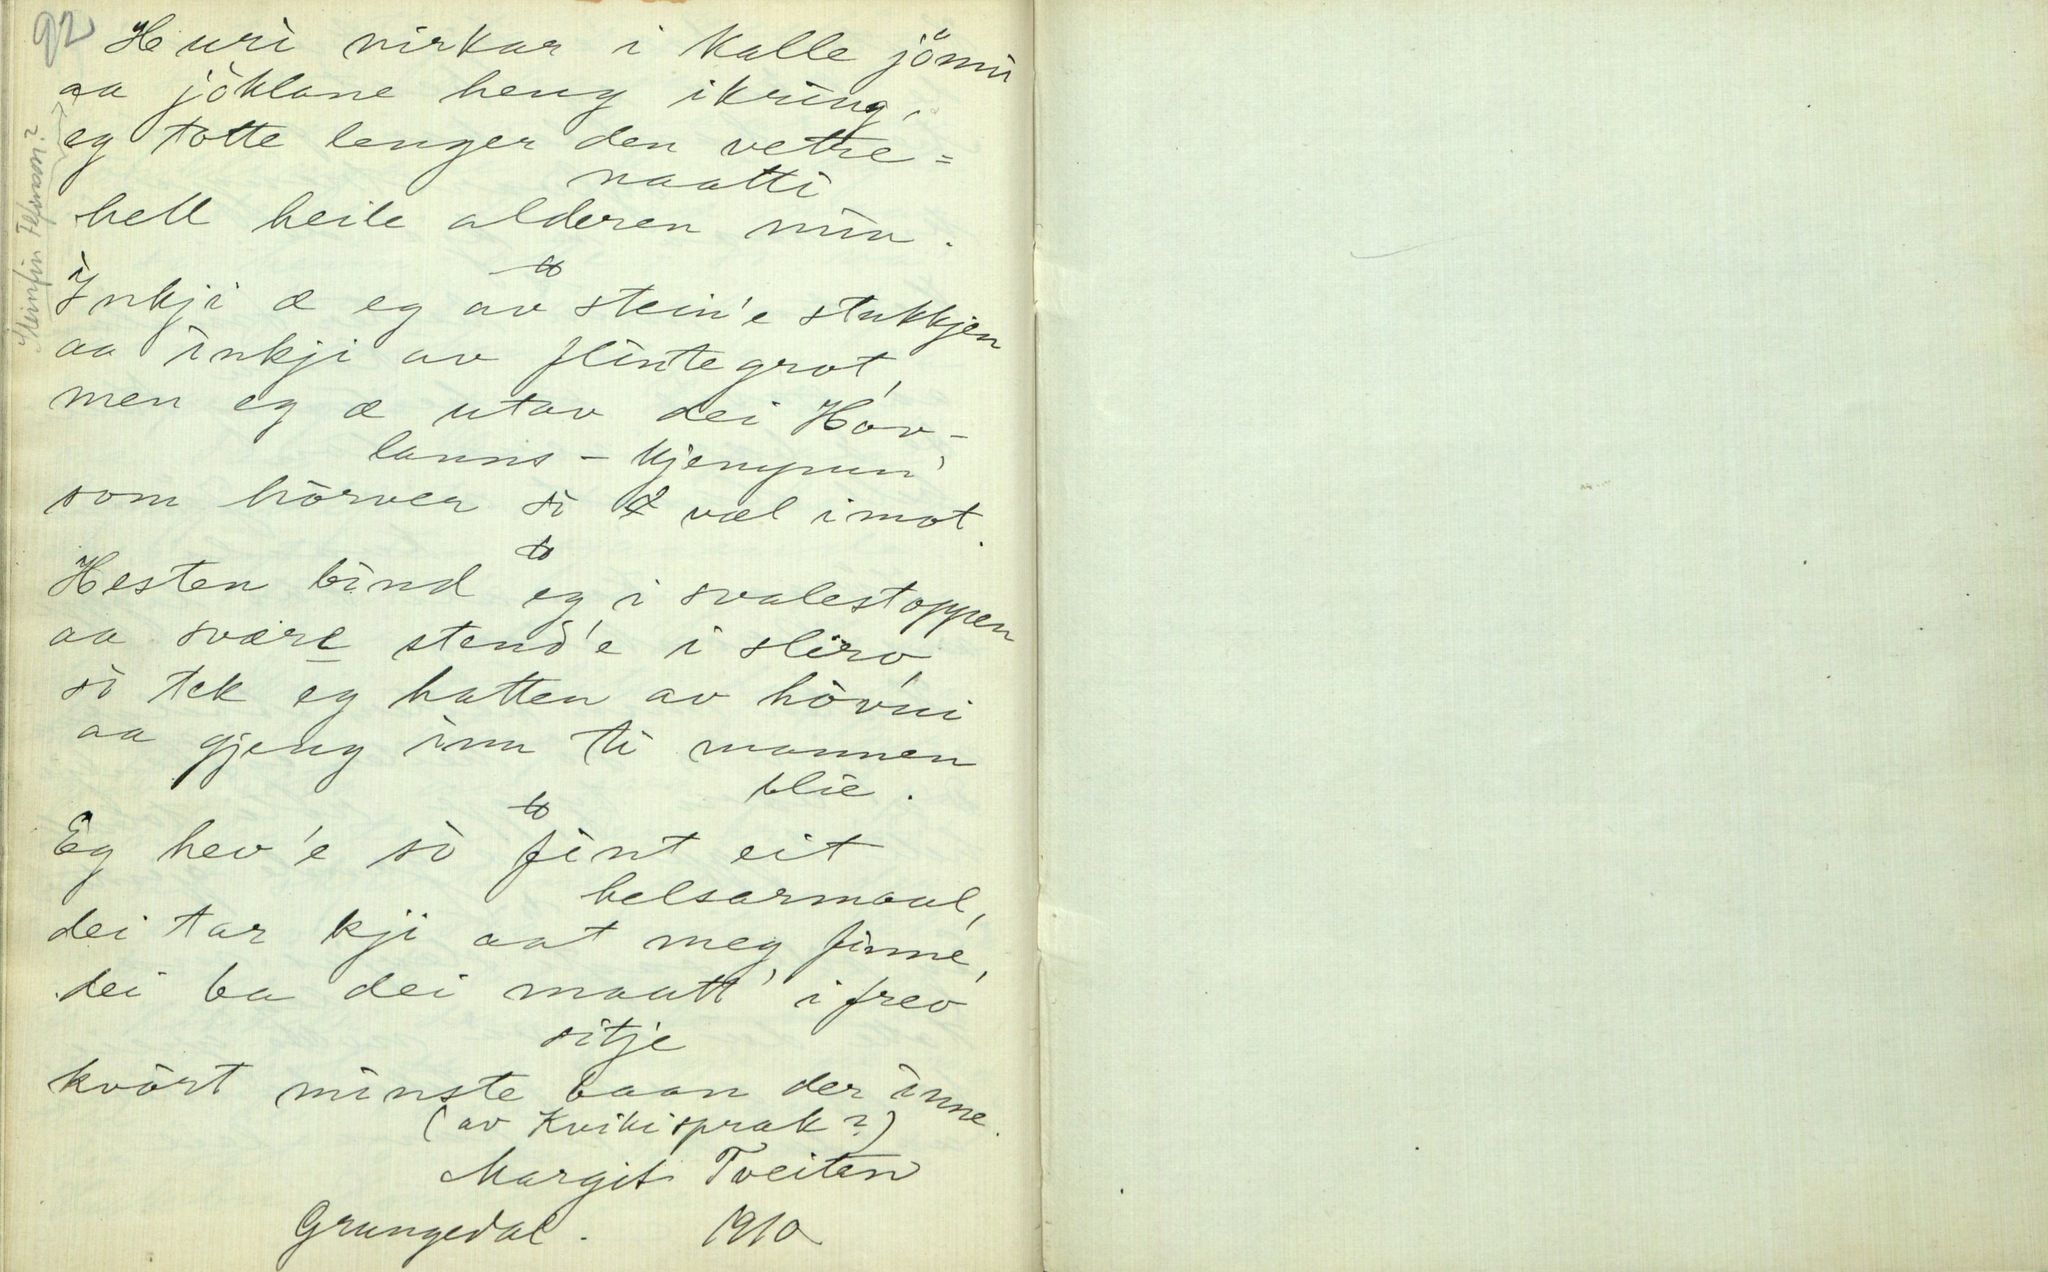 92
Huri nirkar i kalle jönn
aa jöklane heng ikring,
eg totte lenger den vetre =
naatti
hell heile alderen min.
Steinfin Fefinson?
Inkji æ eg av stein'e stukkjen
aa inkji av flintegrot,
men eg æ utav dei Hov-
lanns -
som hörver so væl imot.
Hesten bind eg i svalestoppen
aa svære stend'e i sliro,
so tek eg hatten av hövui
aa gjeng inn ti mannen
blie.
Eg hev'e so fint eit
helsarmaal,
dei tar kji aat meg finne,
dei ba dei maatt' i freo
sitje
kvört minste baan der inne.
(av Kvikisprak?)
Margit Tveiten
Grungedal. 1910